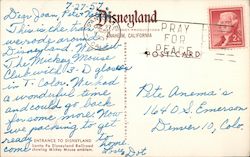 7-27-57
Dear Joan, Pete &
This is the half
Disneyland. W
The Mickey Mouse
Clock with 3-D glasses
in T. Color. We had
a wonderful time
and could go back
for some more. Now
are packing to get
ready
come
Love
Dot
Disneyland
ANAHEIM, CALIFORNIA
PRAY
FOR
PEACE
POSTCARD
2¢
Pete Anema's
1640 S. Emerson
Denver 10, Colo.
ENTRANCE TO DISNEYLAND
Santa Fe Disneyland Railroad
showing Mickey Mouse emblem.